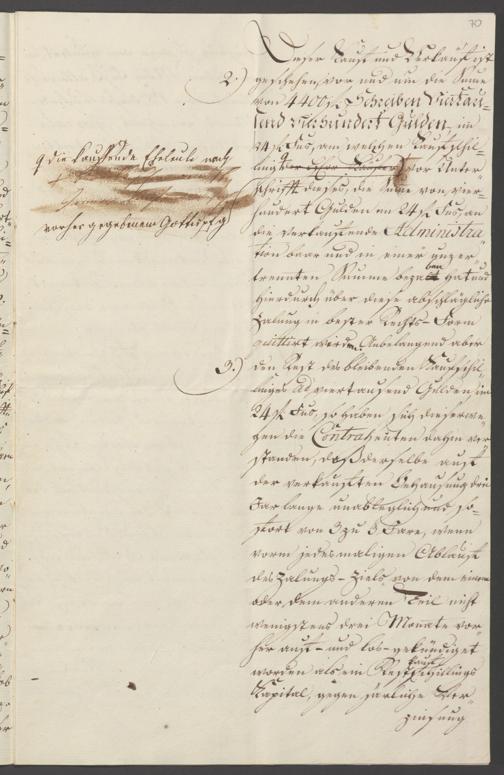 70
Dieser Kauf und Verkauf ist
2.) geschehen, vor und um die Sume
von 4400 f. Schreiben Viertau-
send Vierhundert Gulden, im
24 f. Fus, an welchen Kaufschil-
ling der Herr Käufer vor Unter-
schrift dieses, die Sume von vier-
hundert Gulden im 24 f. Fus, an
die verkaufende Administra-
tion baar und in einer unzer-
trennten Summe bezalt haben und
hierdurch über diese abschlägliche
Zalung in bester Rechts-Form
quittirt werden. Anbelangend aber
3.) den Rest des bleibenden Kaufschil-
linges ad viertausend Gulden im
24 f. Fus, so haben sich dieserwe-
gen die Contrahenten dahin ver-
standen, daß derselbe auf
der verkauften Behausung drei
Jar lange unableglich und so-
fort von 3 zu 3 Jare, wenn
vorm jedesmaligen Ablauf
des Zalungs-Ziels von dem einen
oder dem anderen Teil nicht
wenigstens drei Monate vor-
her auf- und los-gekündiget
worden als ein Restkaufschillings
Kapital, gegen järliche Ver-
zinsung
die kaufende Eheleute nach
vorher gegebenem Gottespfg